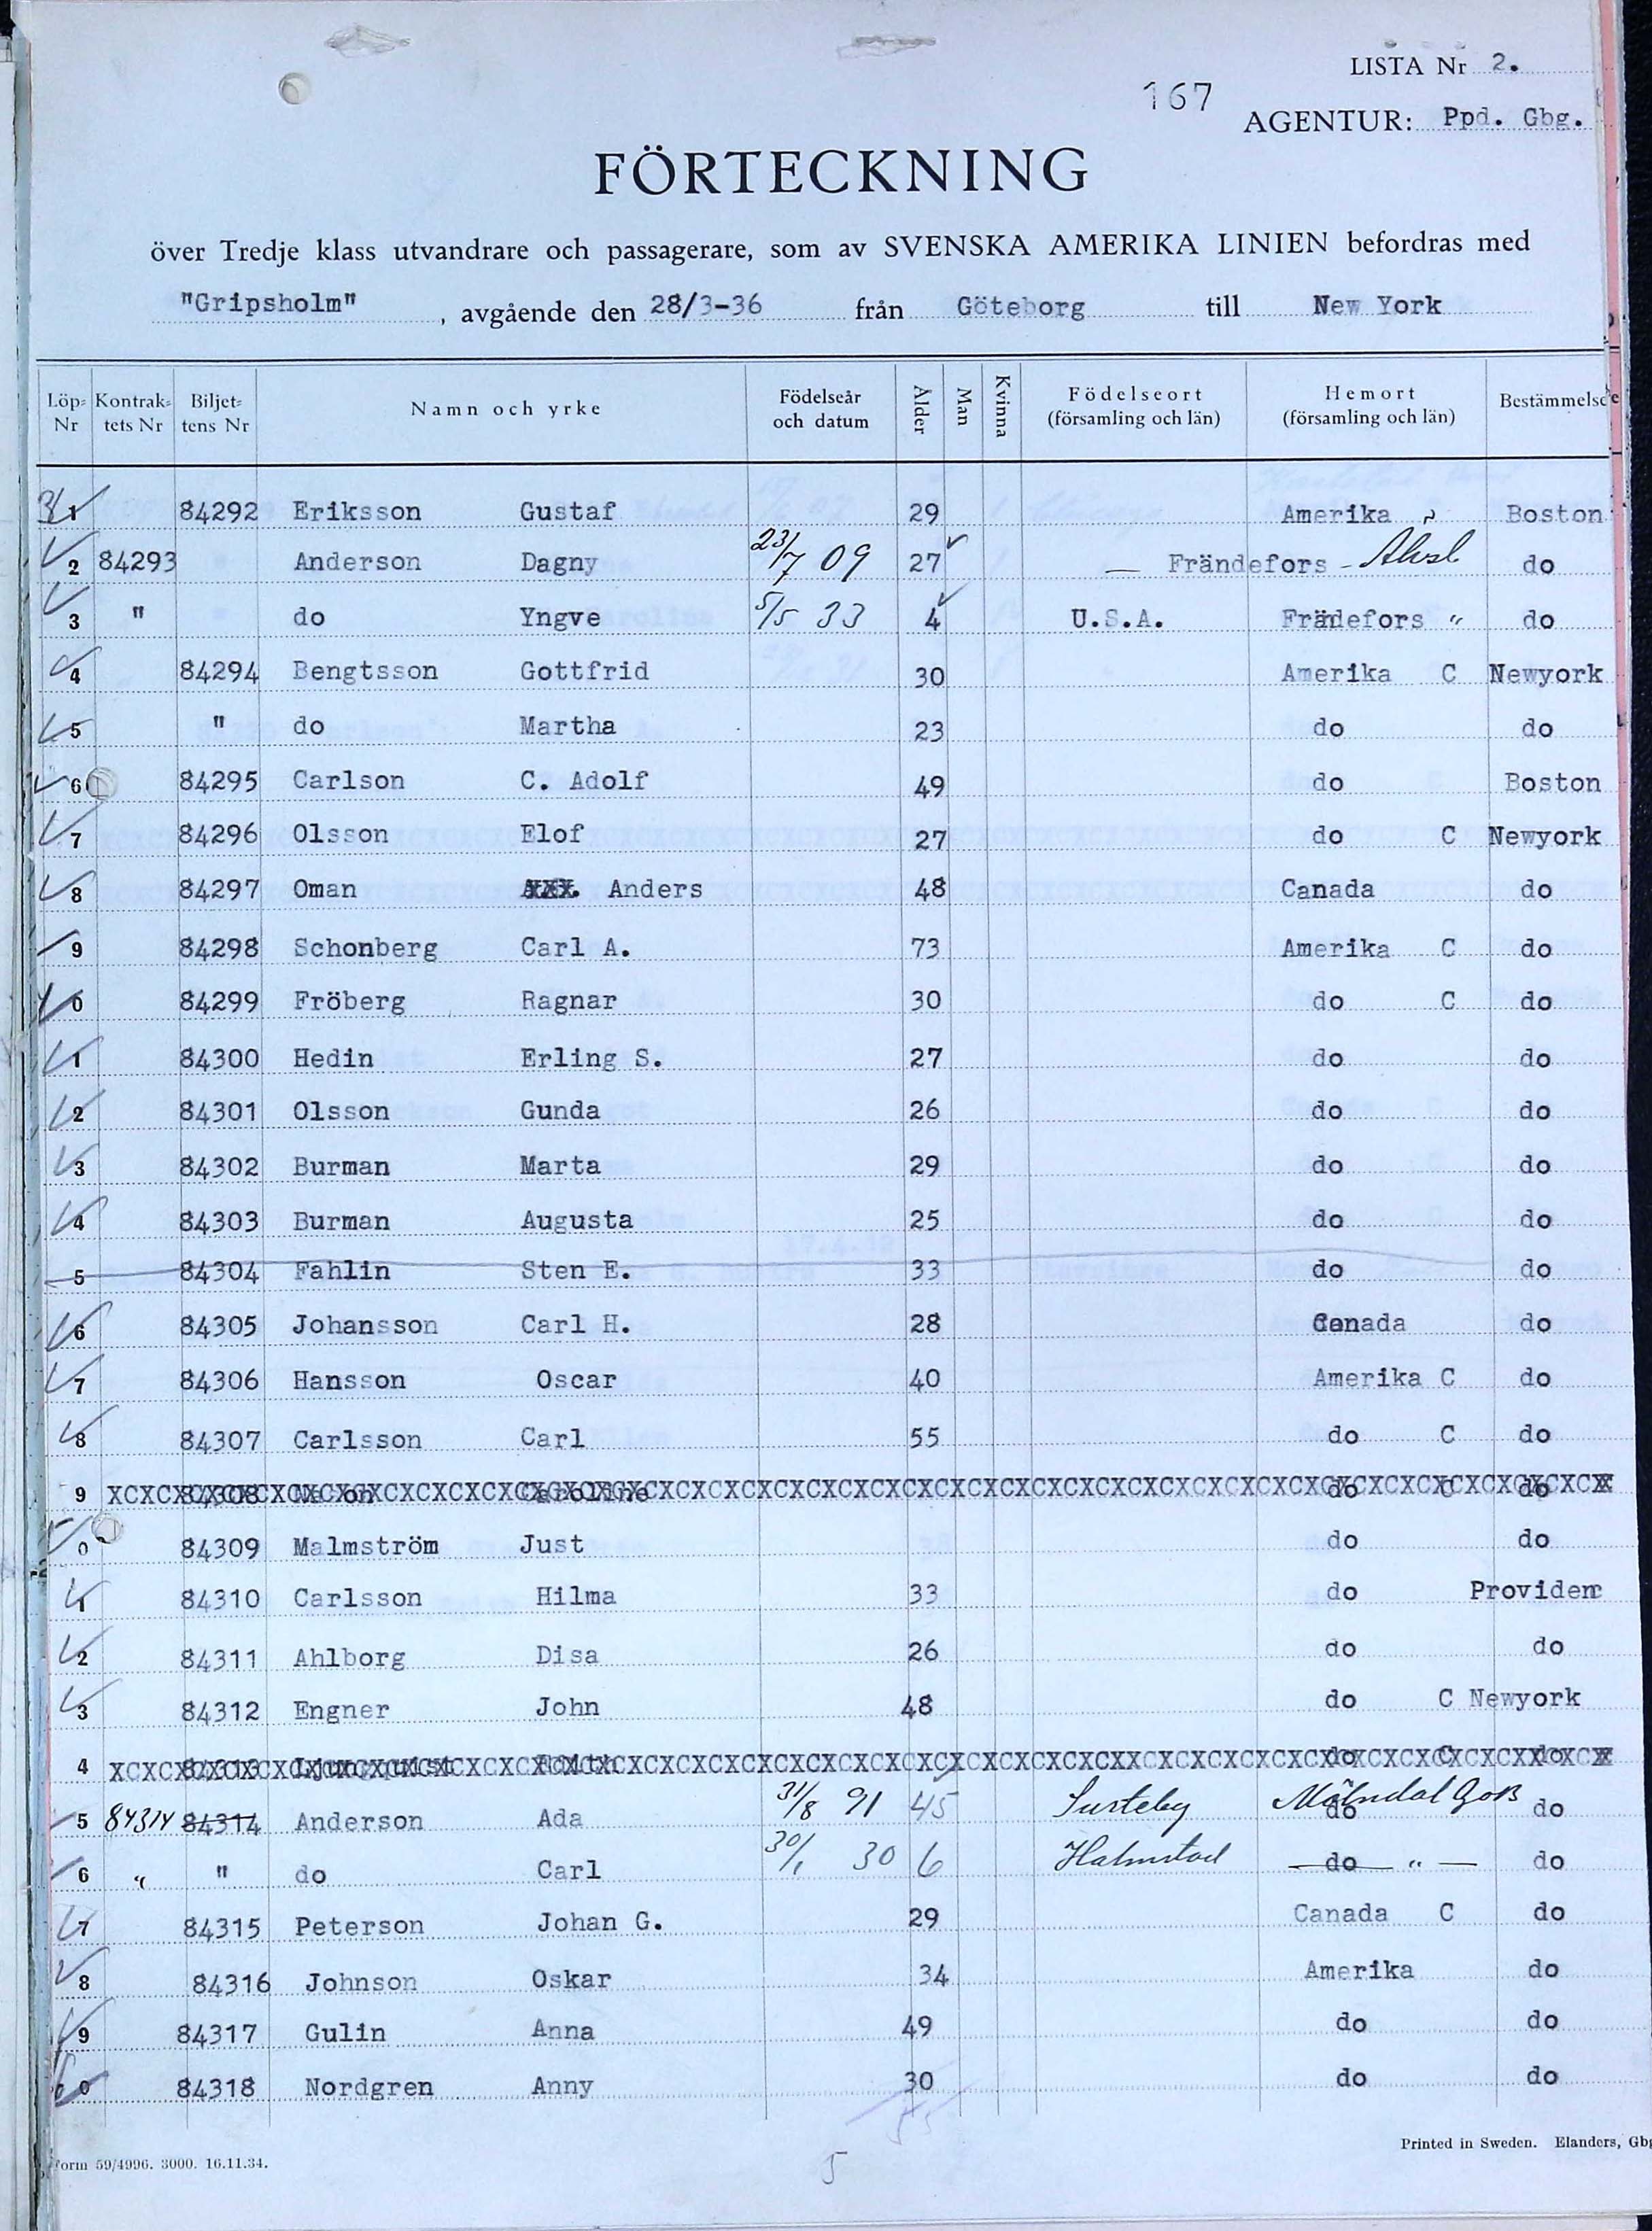 LISTA Nr 2.
167
AGENTUR: Ppd. Gbg.
FÖRTECKNING
över Tredje klass utvandrare och passagerare, som av SVENSKA AMERIKA LINIEN befordras med
"Gripsholm", avgående den 28/3-36 från Göteborg till New York
Löp-Nr Kontrak-tets Nr Biljet-tens Nr Namn och yrke Födelseår och datum Ålder Man Kvinna Födelseort (församling och län) Hemort (församling och län) Bestämmelse
1 84292 Eriksson Gustaf 29 Amerika Boston
2 84293 Anderson Dagny 23/7 09 27 — Frändefors - Älvsl do
3 " do Yngve 5/5 33 4 U.S.A. Frädefors " do
4 84294 Bengtsson Gottfrid 30 Amerika C Newyork
5 " do Martha 23 do do
6 84295 Carlson C. Adolf 49 do Boston
7 84296 Olsson Elof 27 do C Newyork
8 84297 Oman Anders 48 Canada do
9 84298 Schonberg Carl A. 73 Amerika C do
0 84299 Fröberg Ragnar 30 do C do
1 84300 Hedin Erling S. 27 do do
2 84301 Olsson Gunda 26 do do
3 84302 Burman Marta 29 do do
4 84303 Burman Augusta 25 do do
5 84304 Fahlin Sten E. 33 do do
6 84305 Johansson Carl H. 28 Canada do
7 84306 Hansson Oscar 40 Amerika C do
8 84307 Carlsson Carl 55 do C do
9 84308 Caroline do C do
0 84309 Malmström Just do do
1 84310 Carlsson Hilma 33 do Providenc
2 84311 Ahlborg Disa 26 do do
3 84312 Engner John 48 do C Newyork
4 84313 Ljungquist do C do
5 84314 84314 Anderson Ada 31/8 91 45 Surteby Mölndal GoB do do
6 " " do Carl 30/1 30 6 Halmstad do " — do
7 84315 Peterson Johan G. 29 Canada C do
8 84316 Johnson Oskar 34 Amerika do
9 84317 Gulin Anna 49 do do
0 84318 Nordgren Anny 30 do do
5
Form 59/4996. 3000. 16.11.34.
Printed in Sweden. Elanders, Gbg